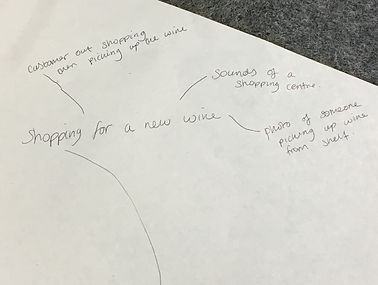 customer out shopping
over picking up the wine
Sounds of a
shopping centre.
Shopping for a new wine
photo of someone
picking up wine
from shelf.